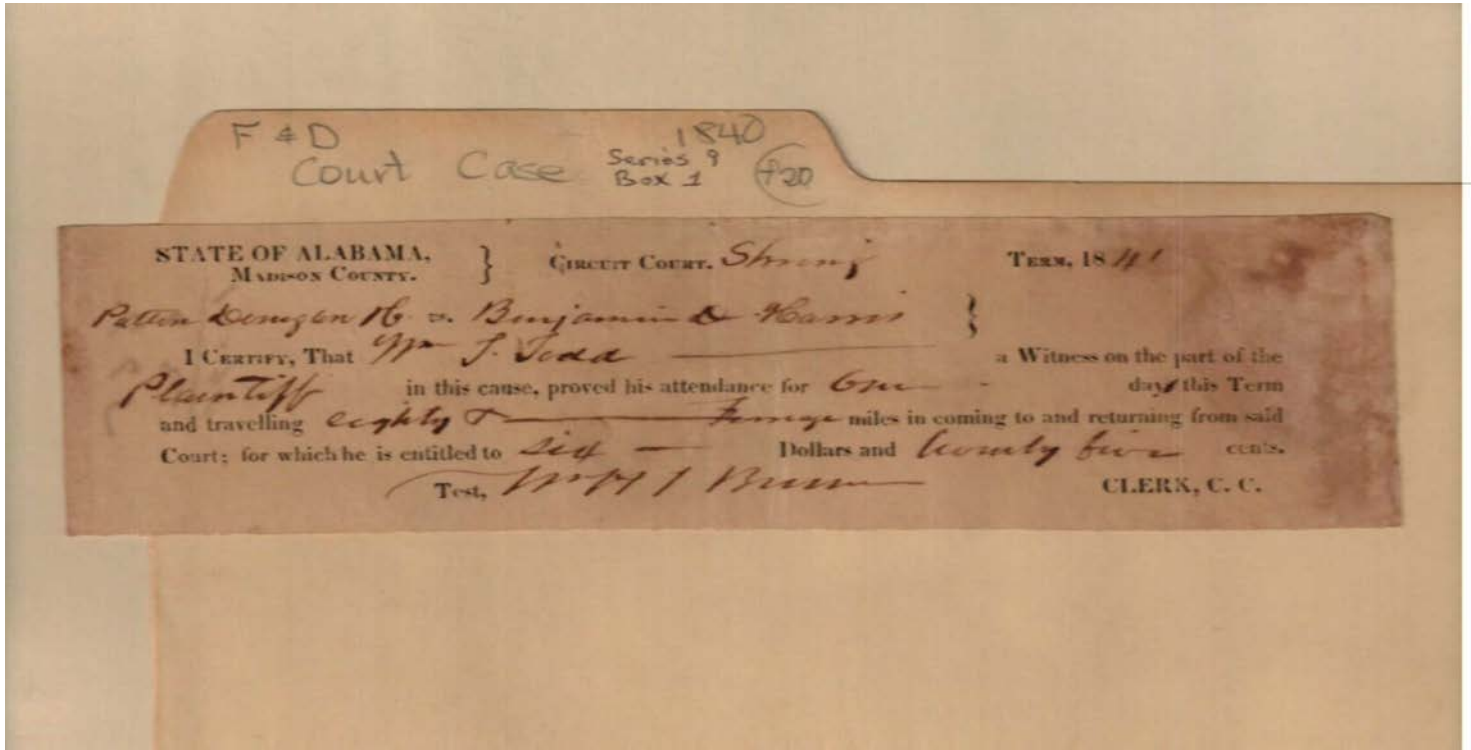 F & D 1840
Court Case Series 9
Box 1 F20
STATE OF ALABAMA, } CIRCUIT COURT. Spring TERM, 1841
MADISON COUNTY.
Patton Donegan & Co. vs. Benjamin D Harris }
I CERTIFY, That Wm J. Todd a Witness on the part of the
Plaintiff in this cause, proved his attendance for One day this Term
and travelling eighty & ferriage miles in coming to and returning from said
Court; for which he is entitled to six Dollars and twenty five cents.
Test, Wm H CLERK, C. C.